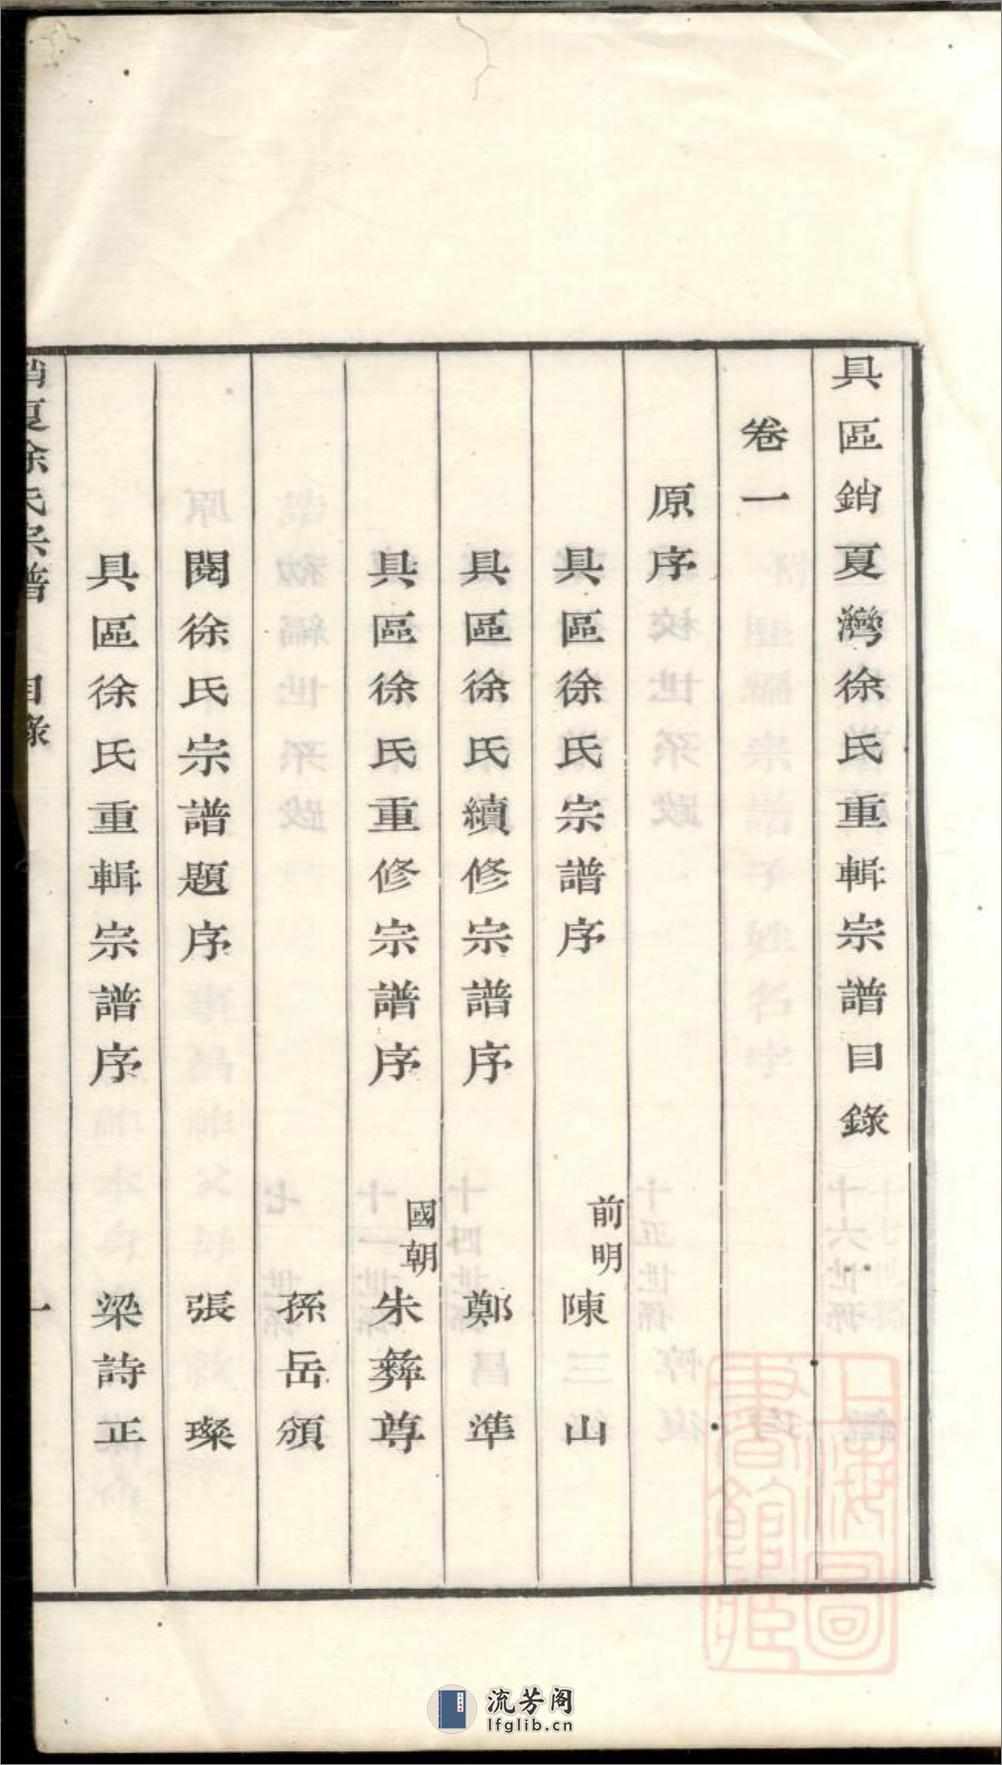 具區銷夏灣徐氏重輯宗譜目錄
卷一
原序
具區徐氏宗譜序 前明 陳三山
具區徐氏續修宗譜序 鄭準
具區徐氏重修宗譜序 國朝 朱彝尊
孫岳頒
閱徐氏宗譜題序 張璨
具區徐氏重輯宗譜序 梁詩正
銷夏徐氏宗譜 目錄 一
上海圖書館藏
流芳阁
lfglib.cn